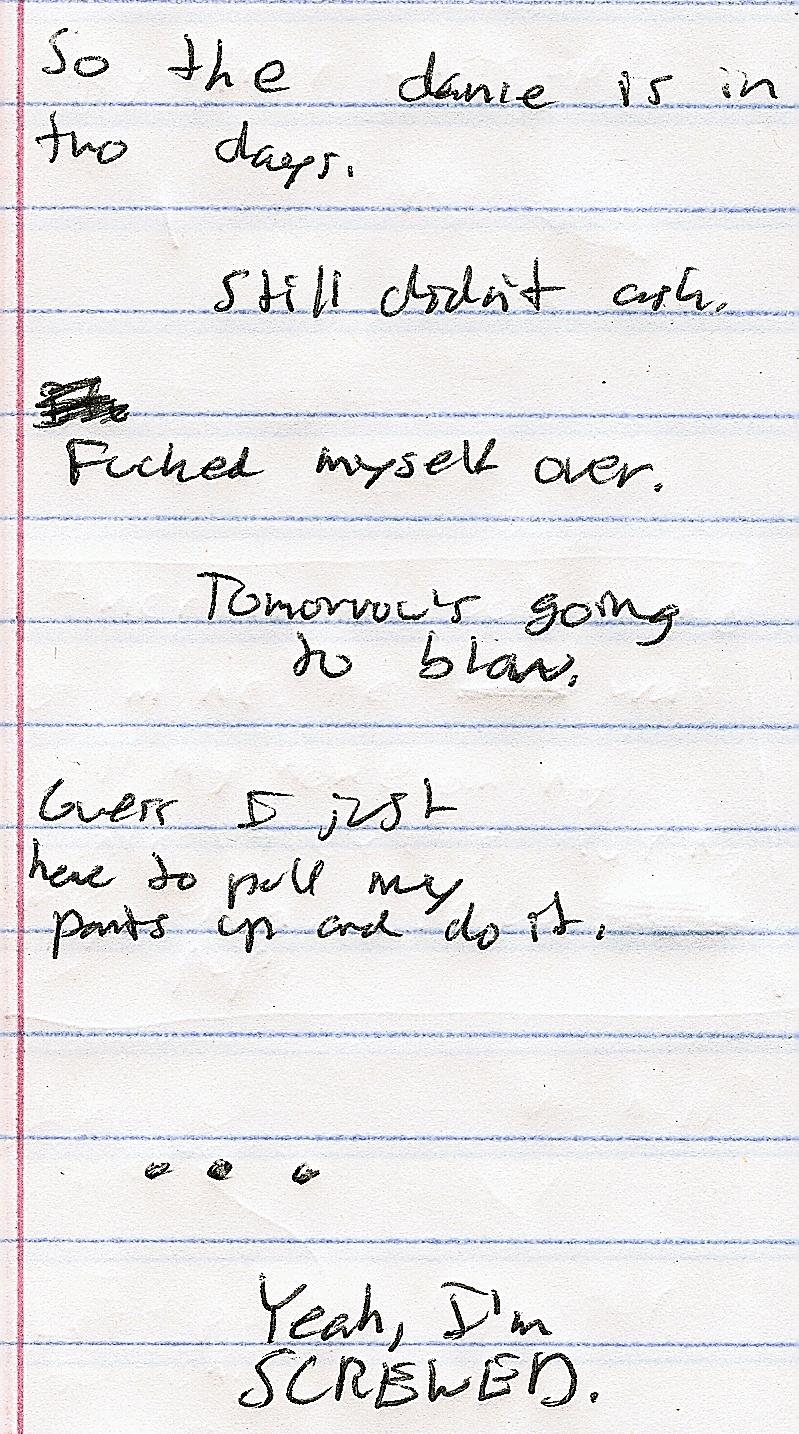 So the dance is in
two days.
Still didn't ask.
Fucked myself over.
Tomorrow's going
to blow.
Guess I just
have to pull my
pants up and do it.
...
Yeah, I'm
SCREWED.